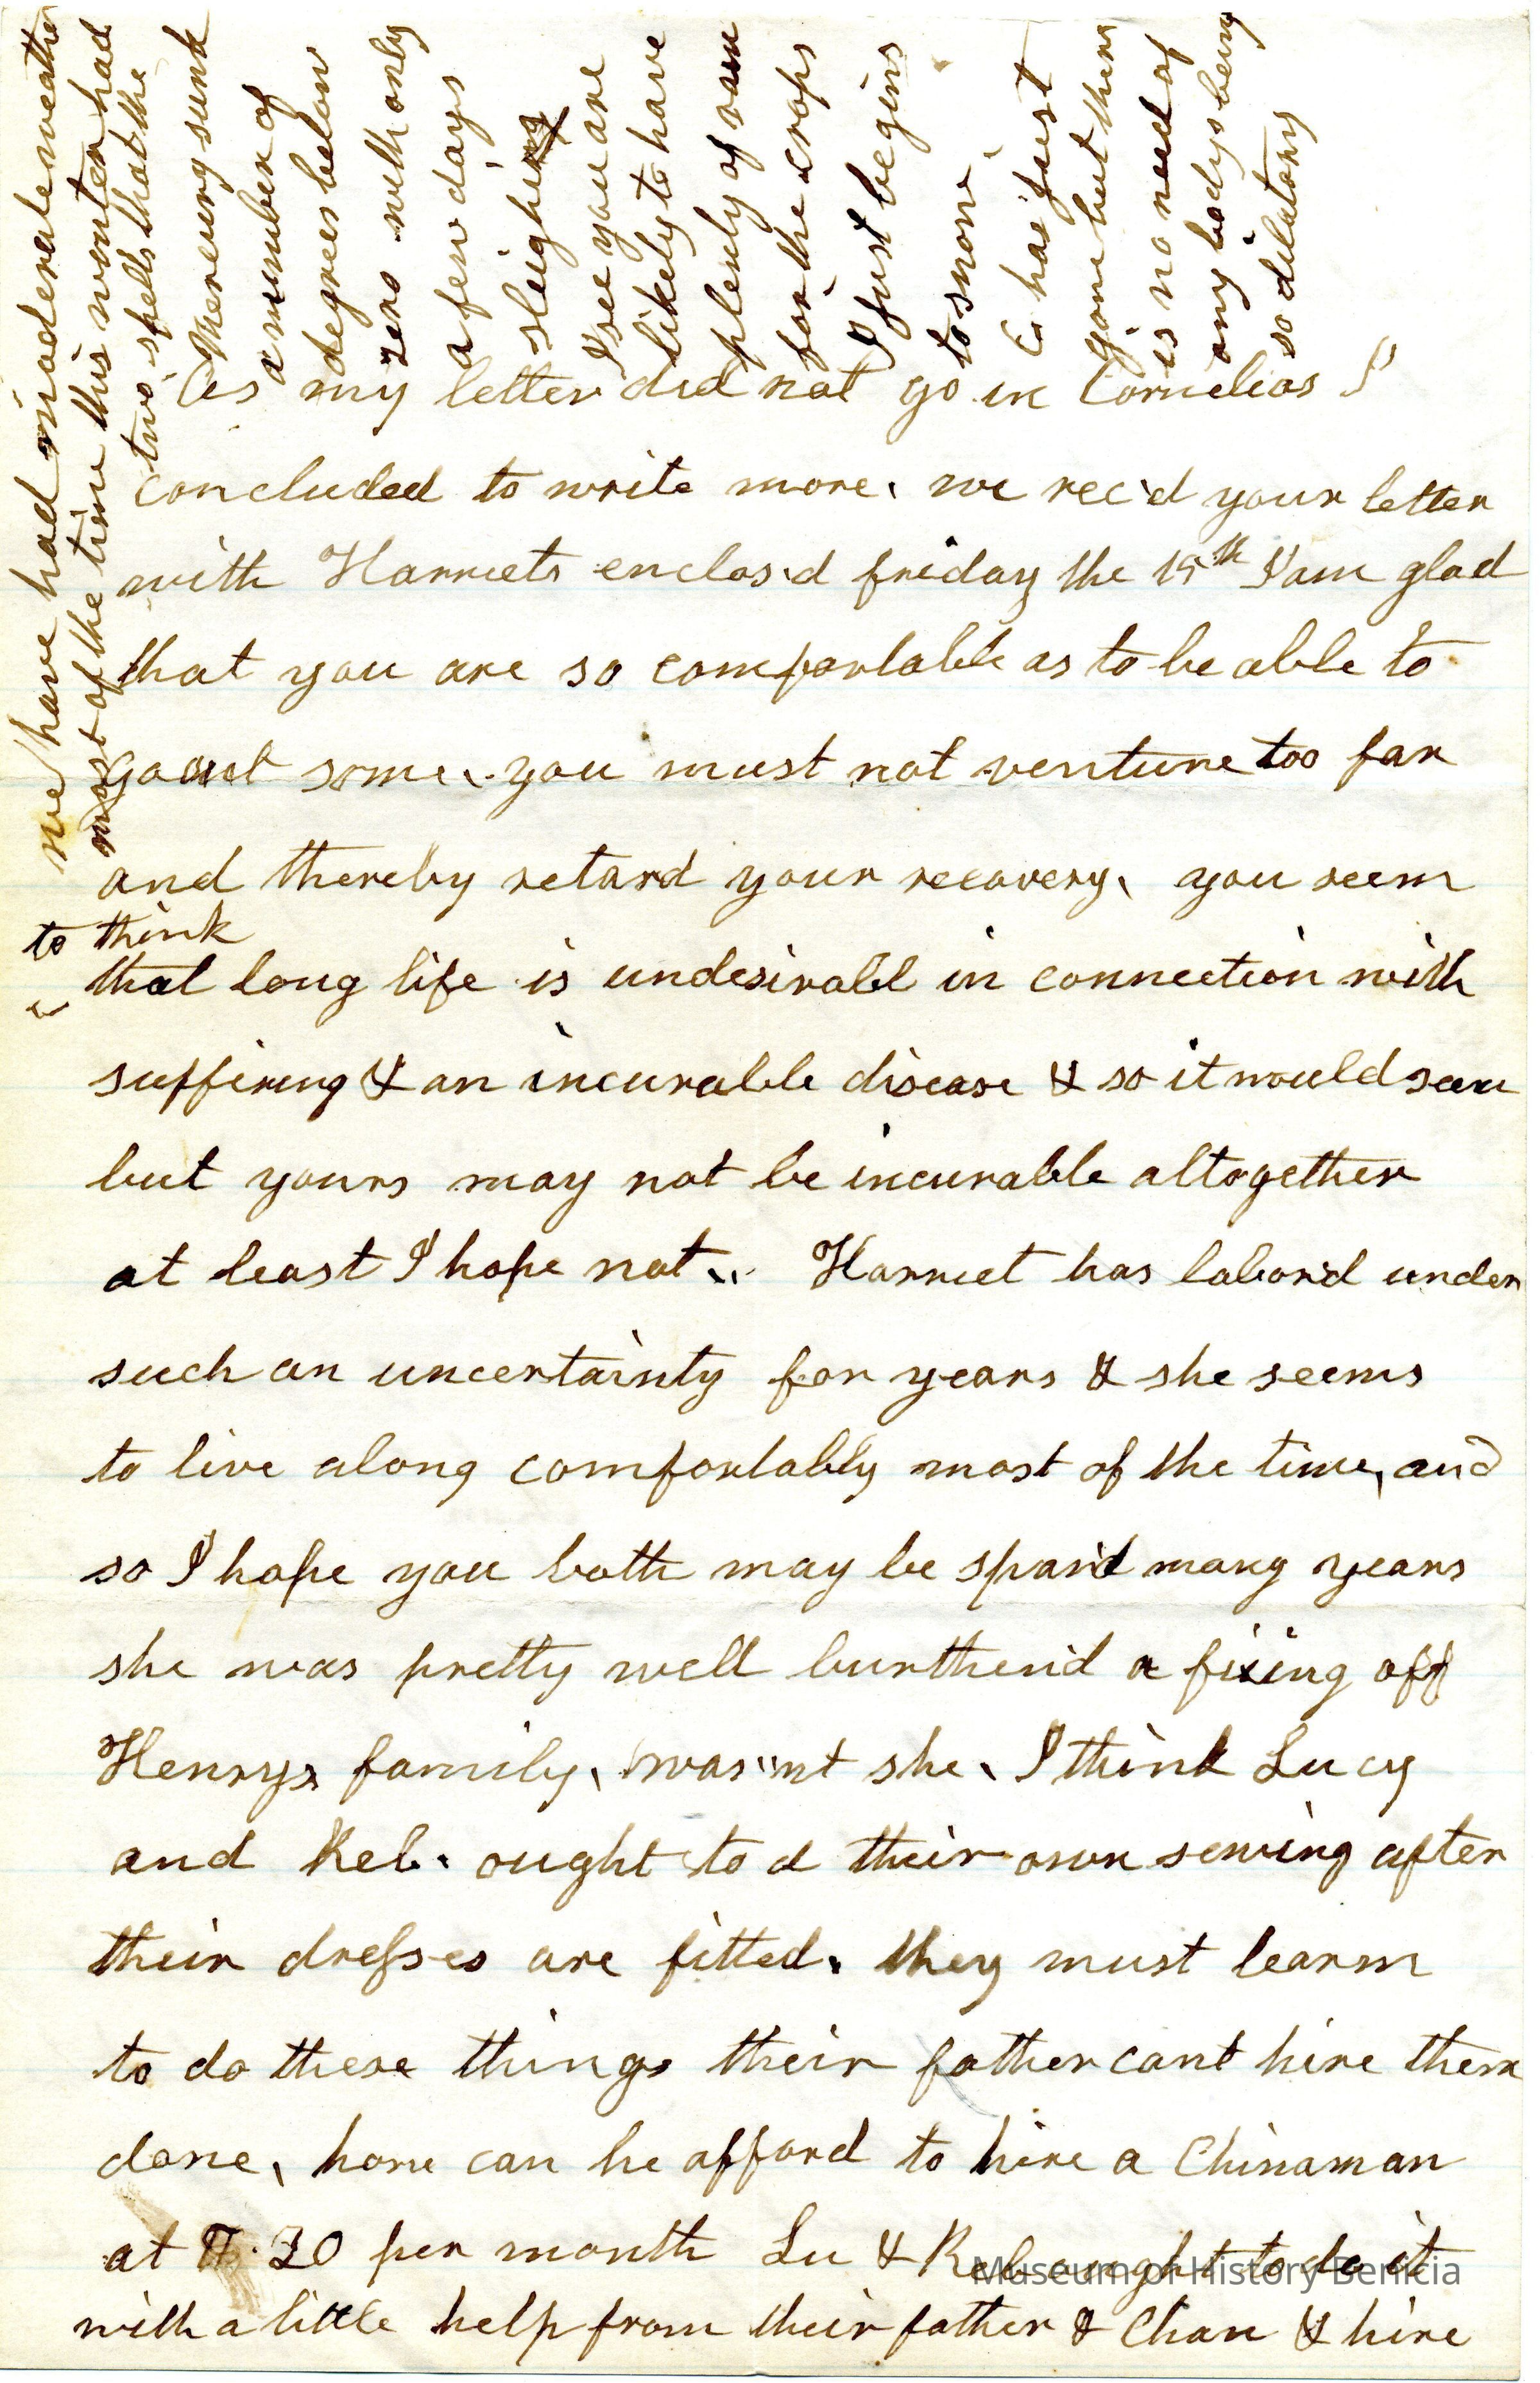 As my letter did not go in Cornelias I
concluded to write more, we rec'd your letter
with Harriets enclos'd friday the 15th I am glad
that you are so comfortable as to be able to
go out some, you must not venture too far
and thereby retard your recovery, you seem
to think
that long life is undesirabl in connection with
suffering & an incurable disease & so it would seem
but yours may not be incurable altogether
at least I hope not,, Harriet has labor'd under
such an uncertainty for years & she seems
to live along comfortably most of the time, and
so I hope you both may be spair'd many years
she was pretty well burthen'd a fixing off
Henrys family, was"nt she, I think Lucy
and Reb. ought to d their own sewing after
their dresses are fitted. they must learn
to do these things their father cant hire them
done, how can he afford to hire a Chinaman
at $.20 per month Lu & Reb ought to do it
with a little help from their father & Chan & hire
we have had moderate weather
most of the time this winter had
two spells that the
Mercury sunk
a number of
degrees below
zero with only
a few days
sleighing
I see you are
likely to have
plenty of rain
for the crops
I just begins
to snow,
C has just
gone but there
is no need of
any bodys being
so dilatory
Museum of History Benicia